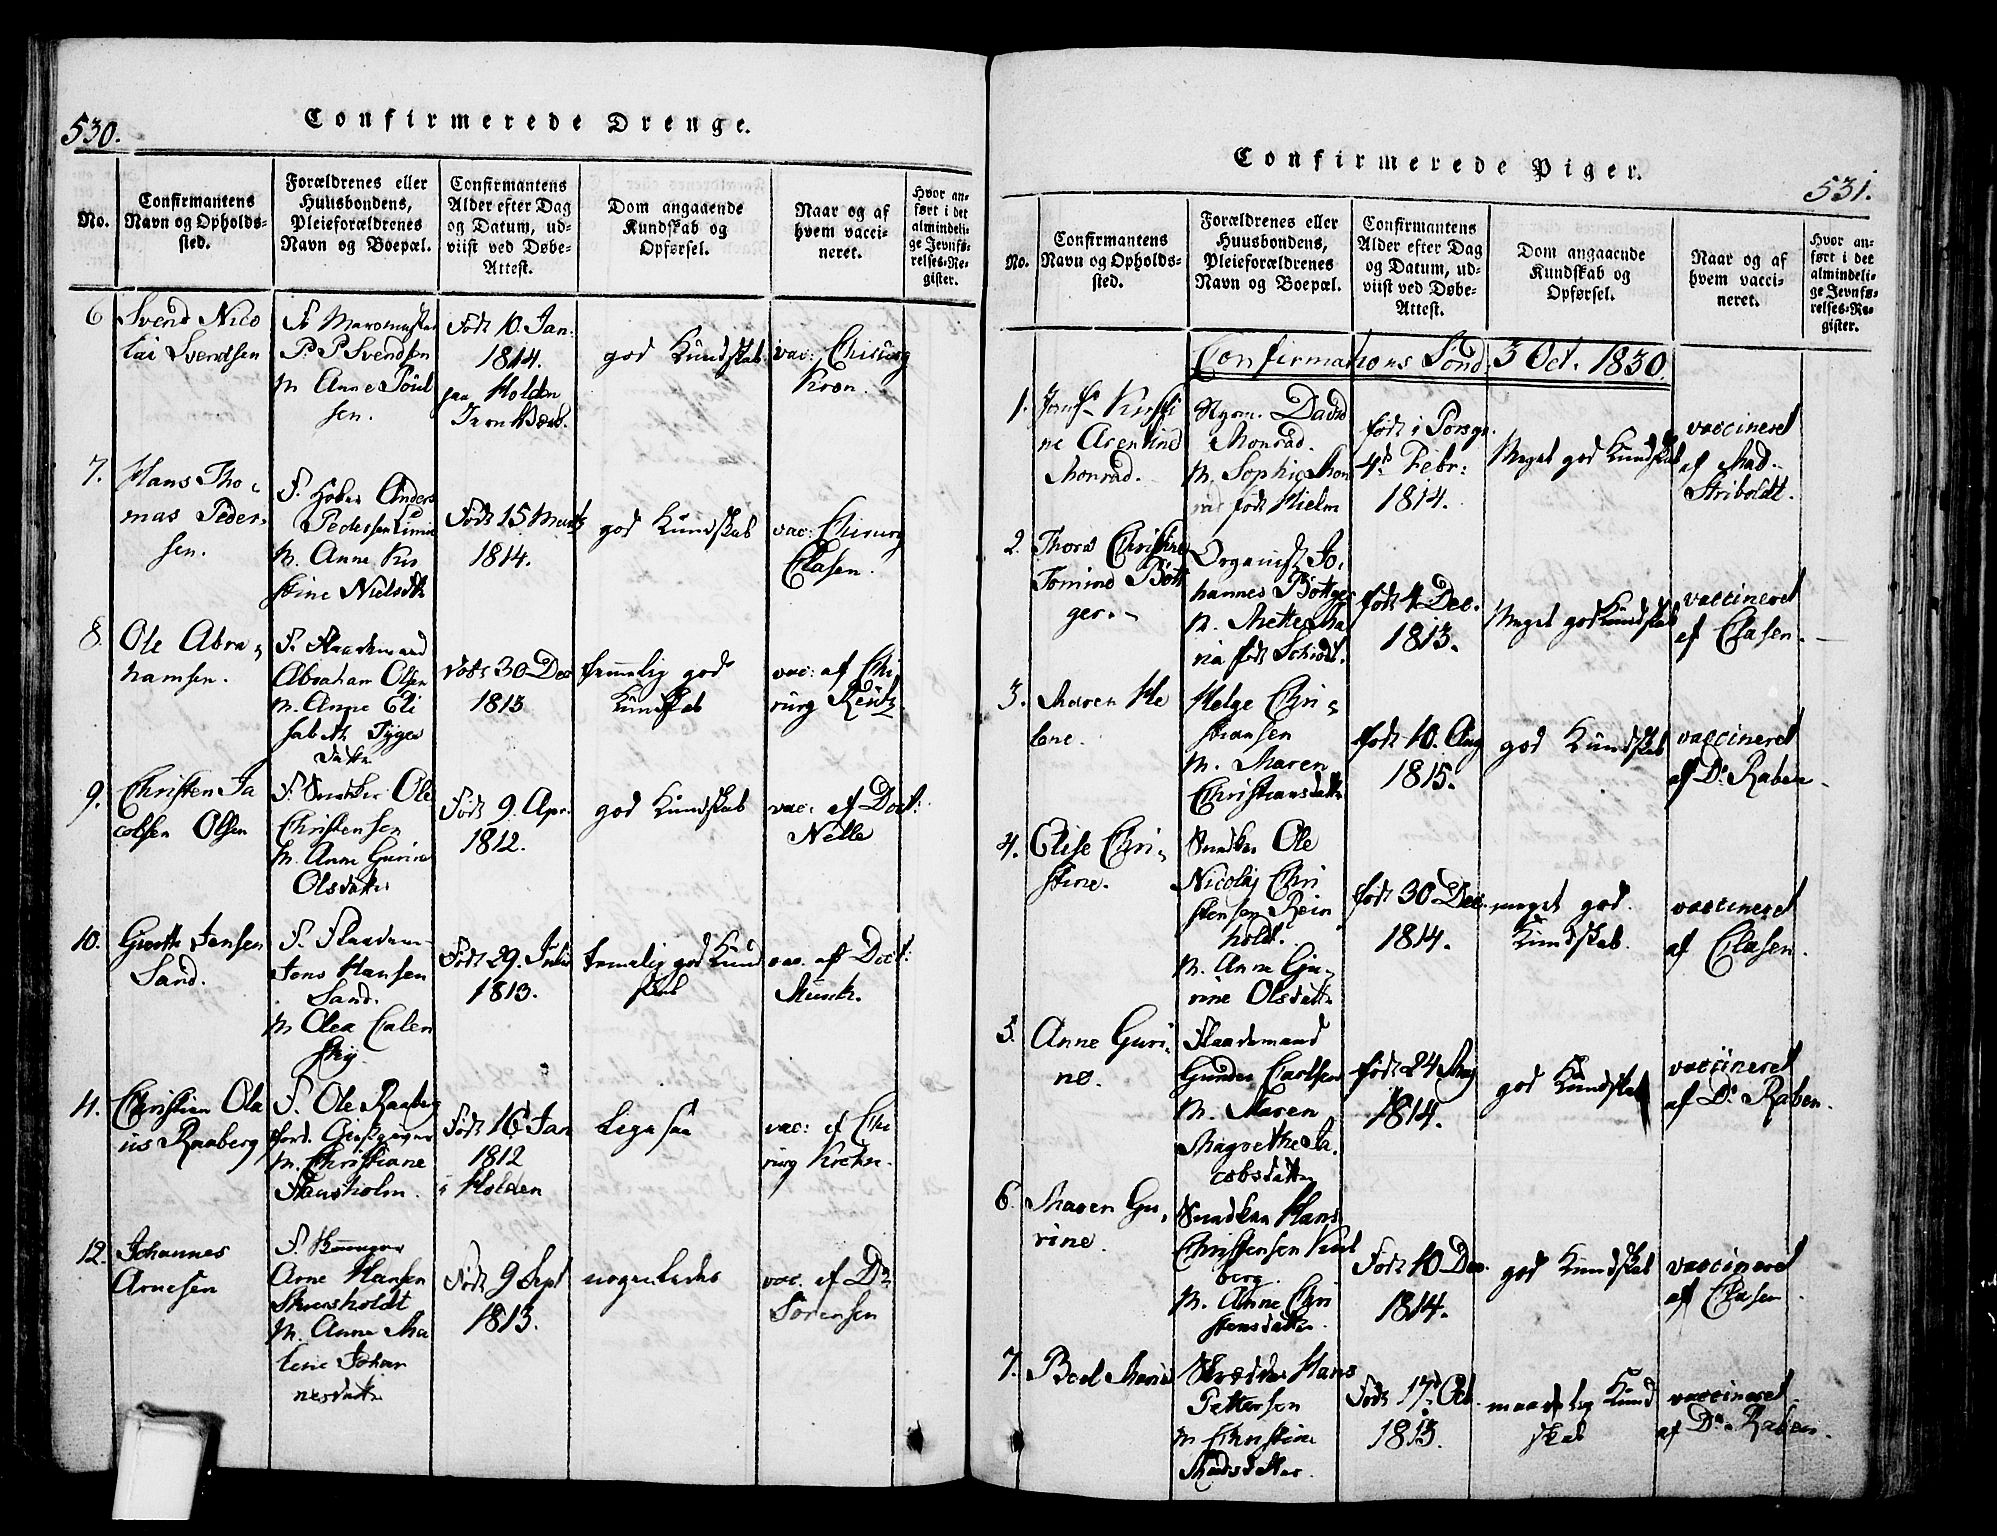 530.
Confirmerede Drenge.
No.
Confirmantens
Navn og Opholds-
sted.
Forældrenes eller
Huusbondens,
Pleieforældrenes
Navn og Boepæl.
Confirmantens
Alder efter Dag
og Datum, ud-
viist ved Døbe-
Attest.
Dom angaaende
Kundskab og
Opførsel.
Naar og af
hvem vacci-
neret.
Hvor an-
ført i det
almindeli-
ge Jevnfø-
relses-Re-
gister.
6
Svend Nico
lai Svendsen
F.
P. P Svendsen
M Anne Poul
sen.
Født 10. Jan:
1814.
paa Holden
Jernværk.
god Kundskab
vac: Chirurg
Kron.
7.
Hans Tho-
mas Peder-
sen.
F. Anders
Pedersen
M. Anne Kri
stine Nielsdtr
Født 15 Martz
1814.
god Kundskab
vac: Chirurg
Clasen.
8.
Ole Abra-
hamsen.
F. Flaademand
Abraham Olsen
M. Anne Eli
sabeth Tyges
datr
Født 30 Dec
1813
temmelig god
Kundskab
vac: af Chi
rurg Reutz.
9.
Christen Ja
cobsen Olsen
F. Snedker Ole
Christensen
M. Anne Gurine
Olsdatter
Født 9. Apr.
1812.
god Kundskab
vac: af Doct:
Nelle
10.
Jensen
Sand.
F. Flaadem-
Jens Hansen
Sand.
M Olea Calen
sky.
Født 29. Julii
1813.
temelig god Kund
skab
vac. af Doct:
Munk.
11.
Christian Ola
us Raaberg
F. Ole Raaberg
ford. Giestgiver
M. Christiane
Flausholm.
Født 16 Jan
1812
i Holden
Ligesaa
vac: af Chi
rurg Krohn.
12.
Johannes
Arnesen
F.
Arne Hansen
M. Anne Ma
lene Johan
nesdatr
Født 9 Sept
1813.
nogenledes
vac. af Dr.
Sørensen
Confirmerede Piger.
531.
No.
Confirmantens
Navn og Opholds-
sted.
Forældrenes eller
Huusbondens,
Pleieforældrenes
Navn og Boepæl.
Confirmantens
Alder efter Dag
og Datum, ud-
viist ved Døbe-
Attest.
Dom angaaende
Kundskab og
Opførsel.
Naar og af
hvem vacci-
neret.
Hvor an-
ført i det
almindeli-
ge Jevnfø-
relses-Re-
gister.
Confirmations Sønd. 3 Oct. 1830.
1.
Kirsti
ne Arentine
Monrad.
David
Monrad.
M. Sophie Mon
rad født Hielm
født i Porsgr.
4de Febr:
1814.
Meget god Kundskab
vaccineret
af Mad.
Striboldt.
2.
Thora Christine
Tomine Bøtt
ger.
Organist Jo-
hannes Bøttger
M. Mette Ma
ria født Schiødt.
født 4 Dec.
1813.
Meget god Kundskab
vaccineret
af Clasen.
3.
Maren He
lene.
Helge Chri-
stiansen
M. Maren
Christiansdatter
født 10. Aug
1815.
god Kundskab
vaccineret
af Dr. Raben
4.
Elise Chri-
stine.
Snedker Ole
Nicolaj Chri
stensen Rein
holdt.
M. Anne Gu-
rine Olsdatter
født 30 Dec.
1814.
meget god
Kundskab.
vaccineret
af Clasen.
5.
Anne Guri-
ne.
Flaademand
Gunder Carlsen
M. Maren
Magrethe Ja
cobsdatter
født 24 Maj
1814.
god Kundskab
vaccineret
af Dr. Raben.
6.
Maren Gu-
rine.
Snedker Hans
Christensen
berg.
M. Anne Chri
stensdatter
Født 10 Dec.
1814.
god Kundskab
vaccineret
af Clasen.
7.
Bod Maria
Skrædder Hans
Pettersen
M Christine
Madsdatter.
Født 17d Oct.
1813.
maadelig Kund
skab
vaccineret
af Dr. Raben.